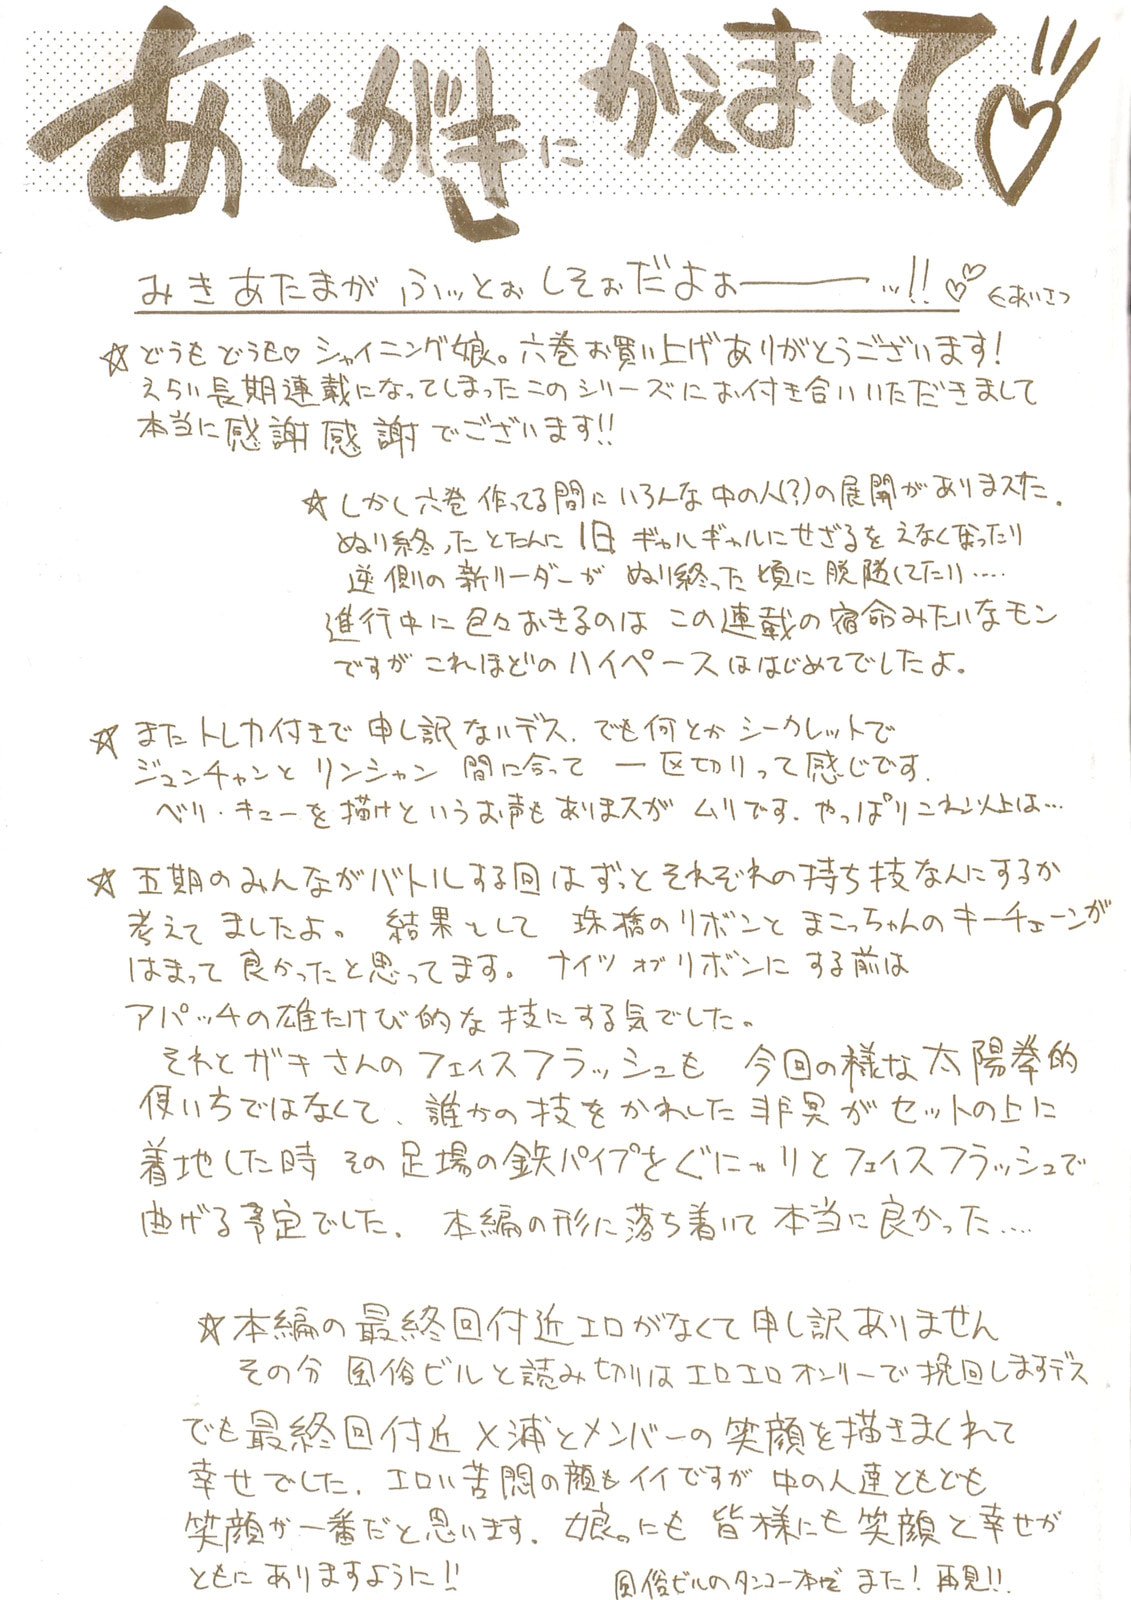 あとがきにかえまして♡
みきあたまが ふぃっとぉ しそぉだよぉーーー…!!♡♡ ←あいさつ
☆どうもどうも♡ シャイニング娘。六巻お買い上げありがとうございます!
えらい長期連載になってしまったこのシリーズにお付き合いいただきまして
本当に感謝感謝でございます!!
☆しかし六巻作ってる間にいろんな中の人(?)の展開がありまスた.
ぬり終ったとたんに1日ギャルギャルにせざるをえなくなったり
逆側の新リーダーがぬり終った頃に脱隊してたり….
進行中に色々おきるのはこの連載の宿命みたいなモン
ですがこれほどのハイペースははじめてでしたよ。
☆またトレカ付きで申し訳ないデス. でも何とかシークレットで
ジュンチャンとリンシャン 間に合って 一区切りって感じです.
ベリ・キューを描けというお声もありまスが ムリです. やっぱりこれ以上は…
☆五期のみんながバトルする回はずっとそれぞれの持ち技なんにするか
考えてましたよ。 結果として 珠橋のリボンとまこっちゃんのキーチェーンが
はまって良かったと思ってます。 ナイツオブリボンにする前は
アパッチの雄たけび的な技にする気でした。
それとガキさんのフェイスフラッシュも 今回の様な太陽拳的
使いちではなくて、誰かの技をかわした非冥がセットの上に
着地した時 その足場の鉄パイプをぐにゃりとフェイスフラッシュで
曲げる予定でした. 本編の形に落ち着いて本当に良かった….
☆本編の最終回付近エロがなくて申し訳ありません
その分 風俗ビルと読み切りはエロエロオンリーで挽回しますデス
でも最終回付近 メ浦とメンバーの笑顔を描きまくれて
幸せでした. エロい苦悶の顔もイイですが 中の人達ともども
笑顔が一番だと思います. 娘。にも 皆様にも笑顔と幸せが
ともにありますように!!
風俗ビルのタンコー本で また! 再見!!.